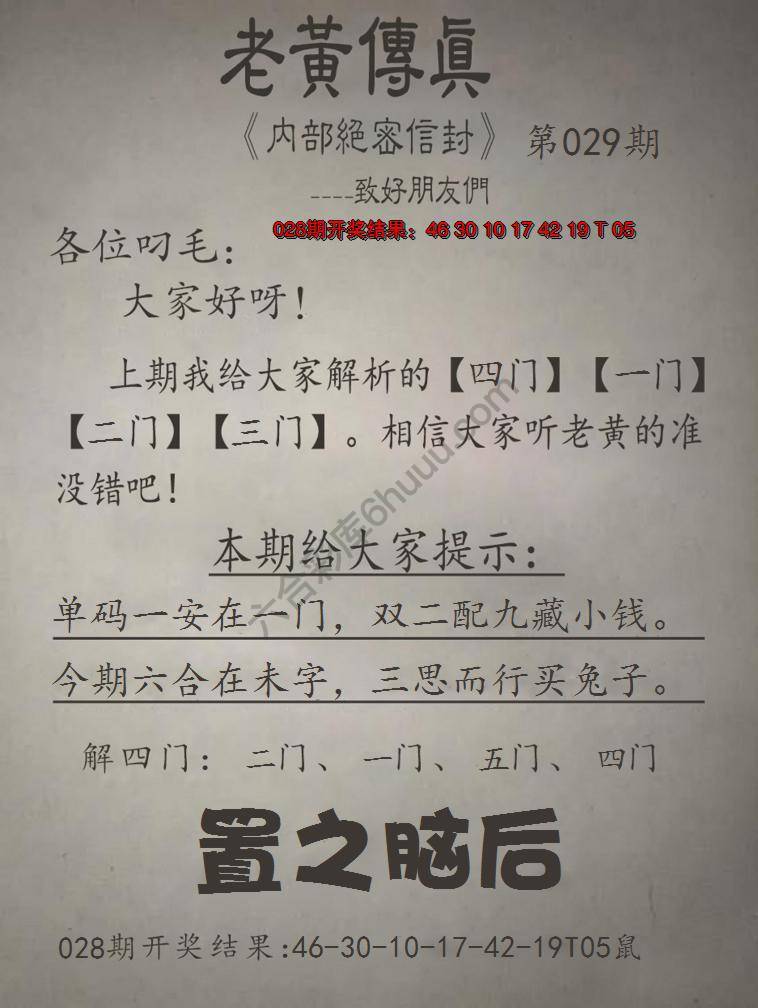 老黃傳眞
《内部絕密信封》 第029期
----致好朋友們
028期开奖结果：46 30 10 17 42 19 T 05
各位叼毛：
大家好呀！
上期我给大家解析的【四门】【一门】
【二门】【三门】。相信大家听老黄的准
没错吧！
六合彩库6huuu.com
本期给大家提示：
单码一安在一门，双二配九藏小钱。
今期六合在未字，三思而行买兔子。
解四门：二门、一门、五门、四门
置之脑后
028期开奖结果:46-30-10-17-42-19T05鼠